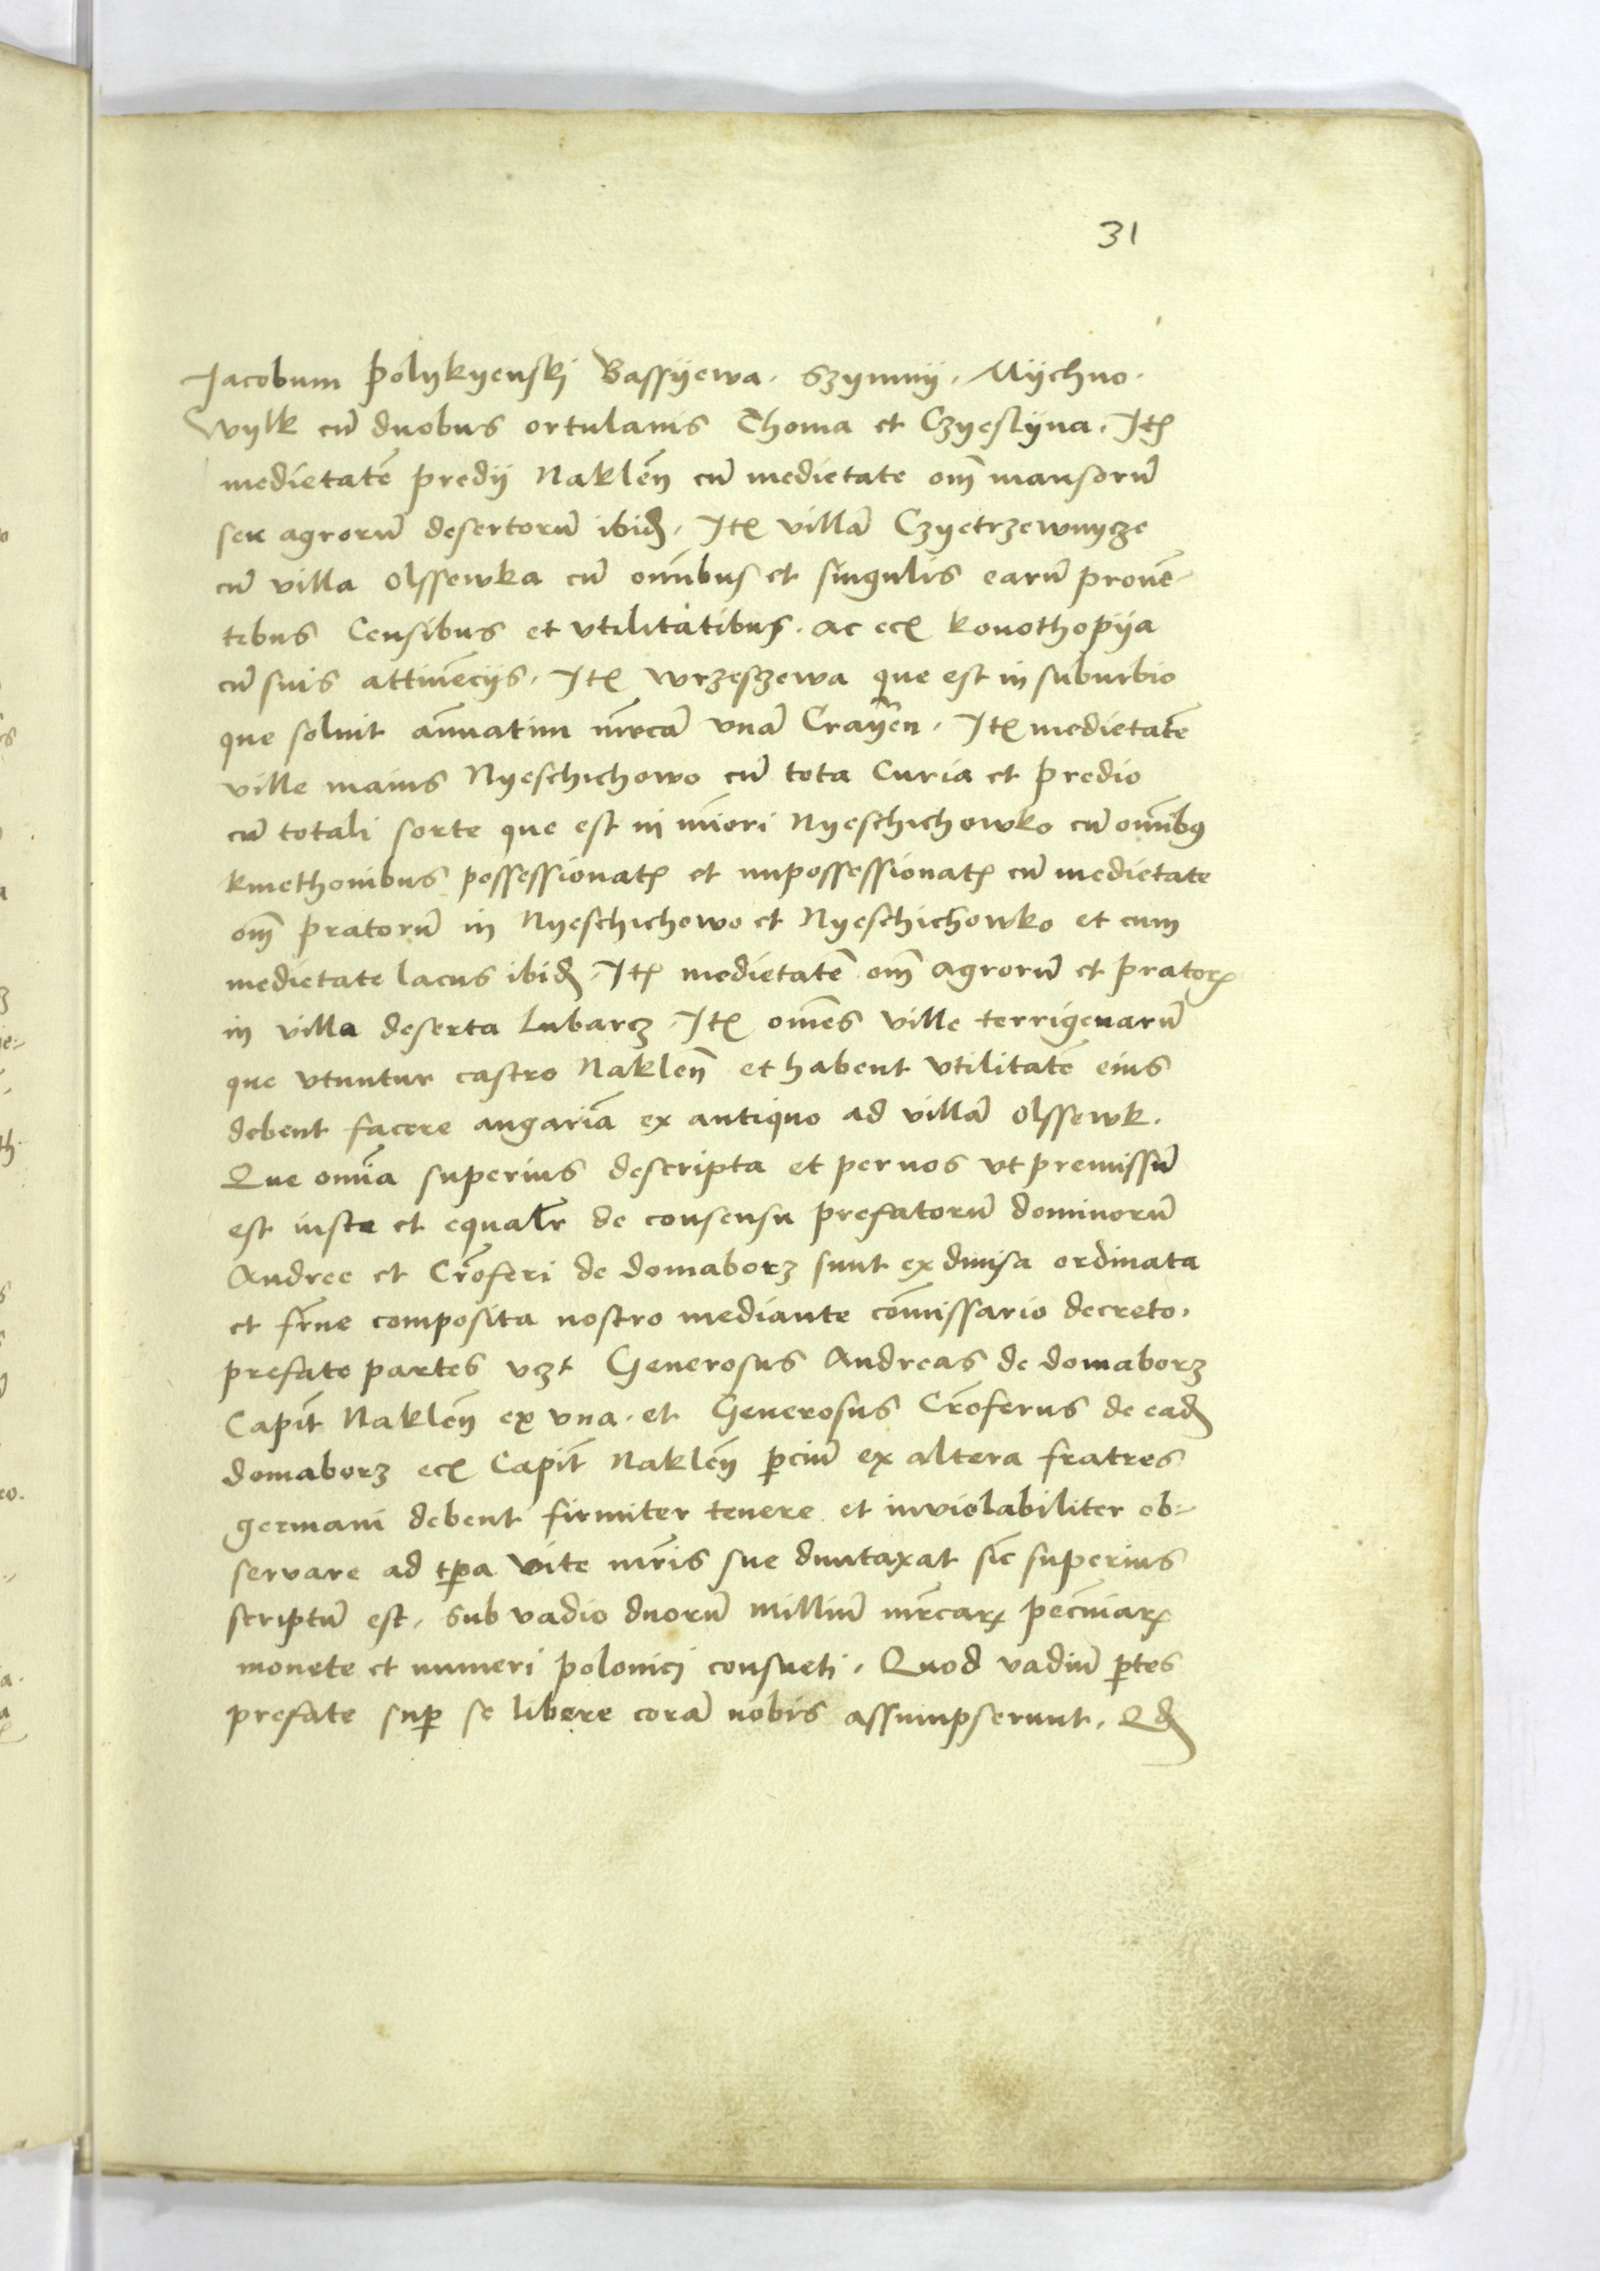 31
Jacobum Polykyenskj Bassyewa. Szymny. Mychno.
Wylk cũ duobus ortulanis Thoma et Czyeslyna. Itꝫ
medietatẽ predij Naklen̄ cũ medietate om̄ mansorũ
seu agrorũ desertorũ ibid. Itꝫ villã Czyetrzewnycze
cũ villa Olssewka cũ om̄ibus et singulis earũ prouẽ-
tibus Censibus et vtilitatibus. ac ecꝫ Konothopya
cũ suis attinẽcijs. Itꝫ Wrzeszewa que est in suburbio
que soluit an̄uatim mr̄cã vnã Crayẽn. Itꝫ medietatẽ
ville maius Nyeschichowo cũ tota Curia et predio
cũ totali sorte que est in mĩori Nyeschichowko cũ om̄ibꝯ
kmethonibus possessionatꝫ et impossessionatꝫ cũ medietate
om̄ pratorũ in Nyeschichowo et Nyeschichowko et cum
medietate lacus ibid. Itꝫ medietatẽ om̄ agrorũ et pratoꝝ
in villa deserta Lubarcz. Itꝫ om̄es ville terrigenarũ
que vtuntur castro Naklen̄ et habent vtilitatẽ eius
debent facere angariã ex antiquo ad villã Olssewk.
Que om̄ia superius descripta et per nos vt premissũ
est iuste et equalr̄ de consensu prefatorũ dominorũ
Andree et Cr̄oferi de domaborz sunt ex diuisa ordinata
et fr̄ne composita nostro mediante com̄issario decreto.
prefate partes vꝫt Generosus Andreas de domaborz
Capit̄ Naklen̄ ex vna. et Generosus Cr̄oferus de ead
domaborz ecꝫ Capit̄ Naklen̄ ꝑciũ ex altera fratres
germani debent firmiter tenere et inviolabiliter ob-
servare ad tꝑa vite mr̄is sue duntaxat sic̄ superius
scriptũ est. sub vadio duorũ milliũ mr̄caꝝ pecũiaꝝ
monete et numeri polonicj consueti. Quod vadiũ ꝑtes
prefate suꝑ se libere corã nobis assumpserunt. Qd